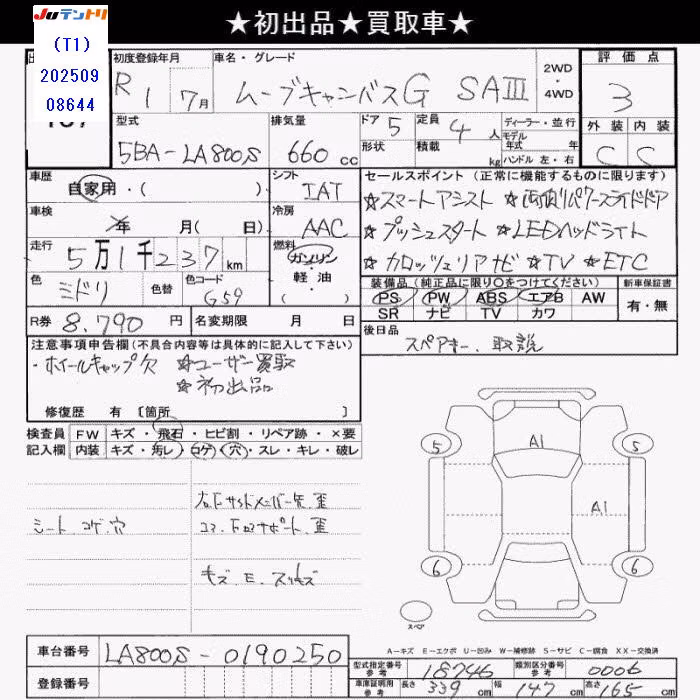 ★初出品★買取車★
JUテントリ
(T1)
202509
08644
初度登録年月 車名・グレード 2WD 4WD 評価点
R1 7月 ムーブキャンバスG SAⅢ 3
型式 排気量 ドア 定員 ディーラー・並行 外装 内装
5BA-LA800S 660cc 5 4人 モデル年式 年 C C
形状 積載 kg ハンドル 左・右
車歴 シフト セールスポイント (正常に機能するものに限ります)
自家用・( ) IAT ☆スマートアシスト ☆両側パワースライドドア
車検 年 月( 日) 冷房 AAC ☆プッシュスタート ☆LEDヘッドライト
走行 5万1千237km 燃料 ガソリン 軽・油 ☆カロッツェリアナビ ☆TV ☆ETC
色 ミドリ 色替 色コード G59
装備品 (純正品に限り○をつけてください) 新車保証書
PS PW ABS エアB AW 有・無
SR ナビ TV カワ
R券 8.790円 名変期限 月 日
後日品 スペアキー、取説
注意事項申告欄(不具合内容等は具体的に記入して下さい)
・ホイールキャップ欠 ☆ユーザー買取
☆初出品
修復歴 有 〔箇所 〕
検査員 FW キズ・飛石・ヒビ割・リペア跡・×要
記入欄 内装 キズ・汚レ・コゲ・穴・スレ・キレ・破レ
シート コゲ 穴
キズ E
A1
A1
5 5
6 6
スペア
A-キズ E-エクボ U-凹み W-補修跡 S-サビ C-腐食 XX-交換済
車台番号 LA800S-0190250
登録番号
型式指定番号 参考 18746 類別区分番号 参考 0006
車庫証明用 参考 長さ 339cm 幅 147cm 高さ 165cm